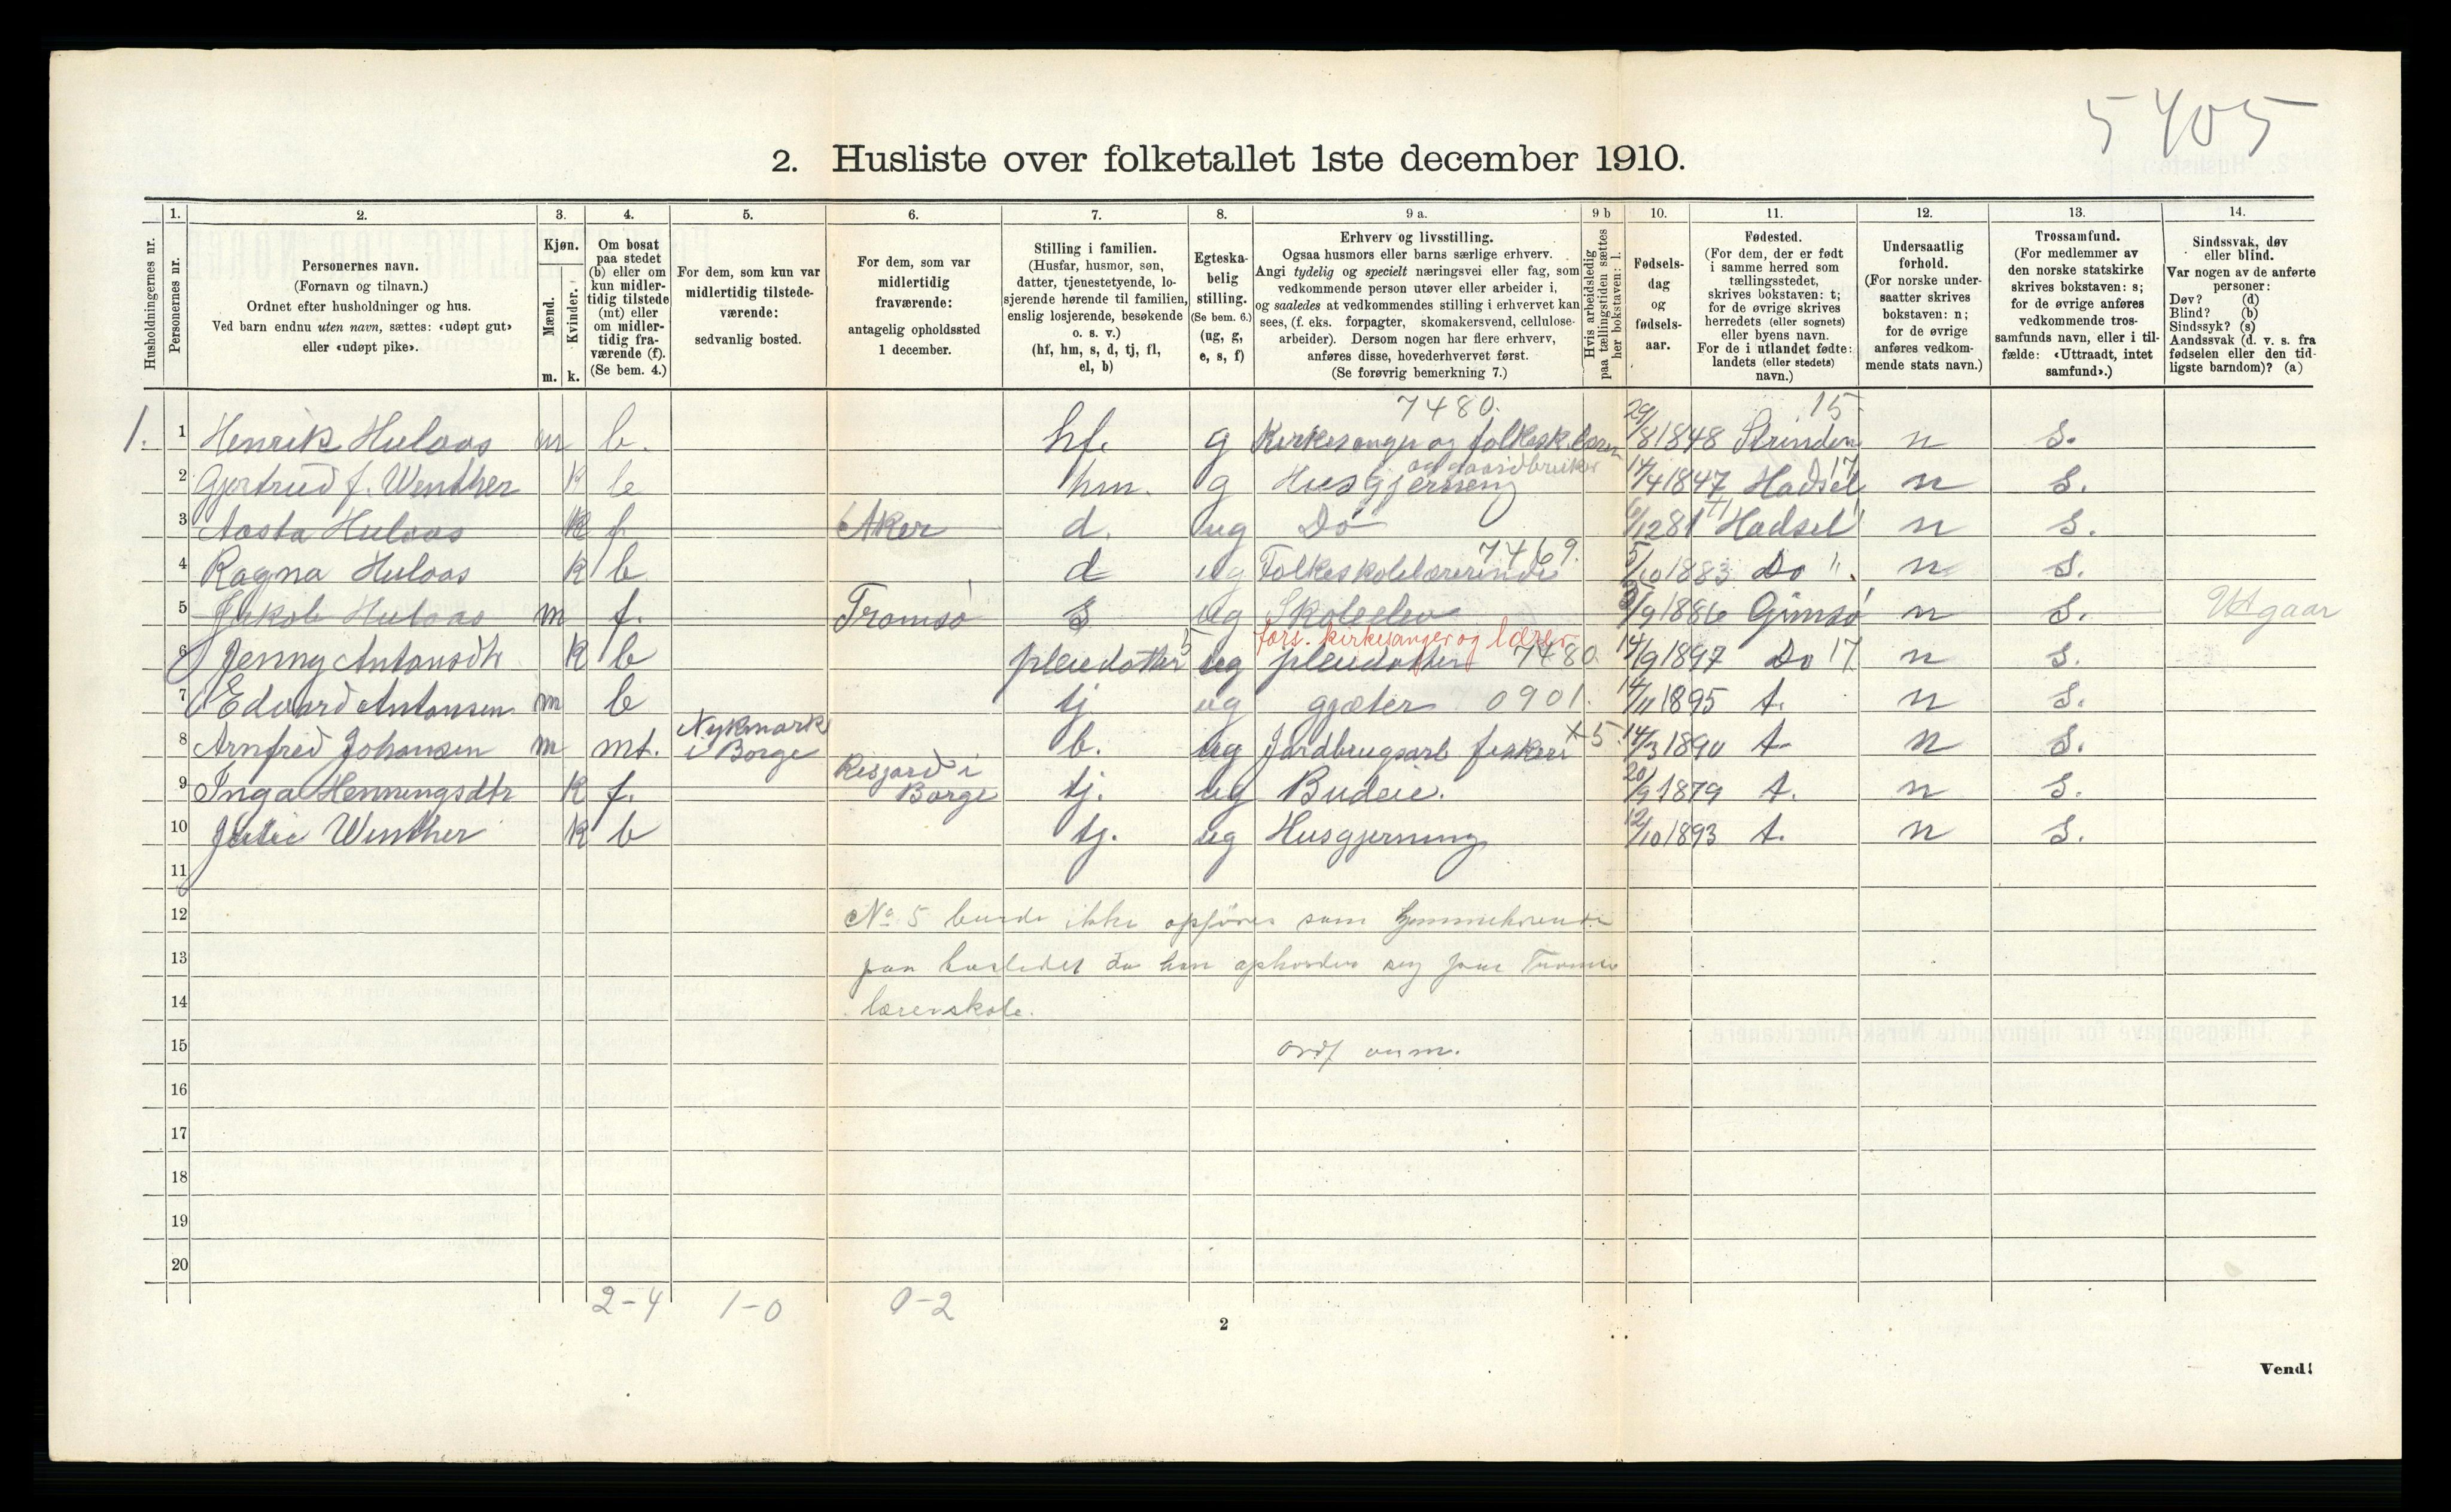 5405
2. Husliste over folketallet 1ste december 1910.
Husholdningernes nr.
1.
Personernes nr.
2.
Personernes navn.
(Fornavn og tilnavn.)
Ordnet efter husholdninger og hus.
Ved barn endnu uten navn, sættes: «udøpt gut»
eller «udøpt pike».
3.
Kjøn.
Mænd.
Kvinder.
m. k.
4.
Om bosat
paa stedet
(b) eller om
kun midler-
tidig tilstede
(mt) eller
om midler-
tidig fra-
værende (f).
(Se bem. 4.)
5.
For dem, som kun var
midlertidig tilstede-
værende:
sedvanlig bosted.
6.
For dem, som var
midlertidig
fraværende:
antagelig opholdssted
1 december.
7.
Stilling i familien.
(Husfar, husmor, søn,
datter, tjenestetyende, lo-
sjerende hørende til familien,
enslig losjerende, besøkende
o. s. v.)
(hf, hm, s, d, tj, fl,
el, b)
8.
Egteska-
belig
stilling.
(Se bem. 6.)
(ug, g,
e, s, f)
9 a.
Erhverv og livsstilling.
Ogsaa husmors eller barns særlige erhverv.
Angi tydelig og specielt næringsvei eller fag, som
vedkommende person utøver eller arbeider i,
og saaledes at vedkommendes stilling i erhvervet kan
sees, (f. eks. forpagter, skomakersvend, cellulose-
arbeider). Dersom nogen har flere erhverv,
anføres disse, hovederhvervet først.
(Se forøvrig bemerkning 7.)
9 b
Hvis arbeidsledig
paa tællingstiden sættes
her bokstaven: l.
10.
Fødsels-
dag
og
fødsels-
aar.
11.
Fødested.
(For dem, der er født
i samme herred som
tællingsstedet,
skrives bokstaven: t;
for de øvrige skrives
herredets (eller sognets)
eller byens navn.
For de i utlandet fødte:
landets (eller stedets)
navn.)
12.
Undersaatlig
forhold.
(For norske under-
saatter skrives
bokstaven: n;
for de øvrige
anføres vedkom-
mende stats navn.)
13.
Trossamfund.
(For medlemmer av
den norske statskirke
skrives bokstaven: s;
for de øvrige anføres
vedkommende tros-
samfunds navn, eller i til-
fælde: «Uttraadt, intet
samfund».)
14.
Sindssvak, døv
eller blind.
Var nogen av de anførte
personer:
Døv? (d)
Blind? (b)
Sindssyk? (s)
Aandssvak (d. v. s. fra
fødselen eller den tid-
ligste barndom)? (a)
7480. 15
1. 1 Henrik Hulaas m b. hf. g Kirkesanger og folkesk.lærer 29/8 1848 Strinden n s.
og gaardbruker 17
2 Gjertrud f. Winther k b hm. g Husgjerning 14/4 1847 Hadsel n s.
3 Aasta Hulaas k f Aker d. ug Do 6/12 81 Hadsel n s.
7469.
4 Ragna Hulaas k b d ug Folkeskolelærerinde 5/10 1883 Do ". n s.
5 Jakob Hulaas m f. Tromsø s ug Skoleelev /9 1886 Gimsø n s. Utgaar
fors. kirkesanger og lærer
6 Jenny Antonsdtr k b pleiedatter 5 ug pleiedatter 7480 14/9 1897 Do 17 n s.
7 Edvard Antonsen m b tj ug gjæter 0901. 14/11 1895 t. n s.
Nykmark
8 Arnfred Johansen m mt. i Borge b. ug Jordbrugsarb fiskeri x 5 14/3 1890 t. n s.
i
9 Inga Henningsdtr k f. Borge tj. ug Budeie. 20/9 1879 t. n s.
10 Julie Winther k b tj. ug Husgjerning 12/10 1893 t. n s.
11
12 No 5 burde ikke opføres som hjemmehørende
13 paa bostedet da han opholder seg paa Tromsø
14 lærerskole.
15
16
17
18
19
20
2-4 1-0 0-2
2
Vend!